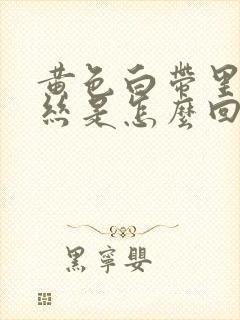 黄色白帶里
絲是怎麼回
黑寧嬰